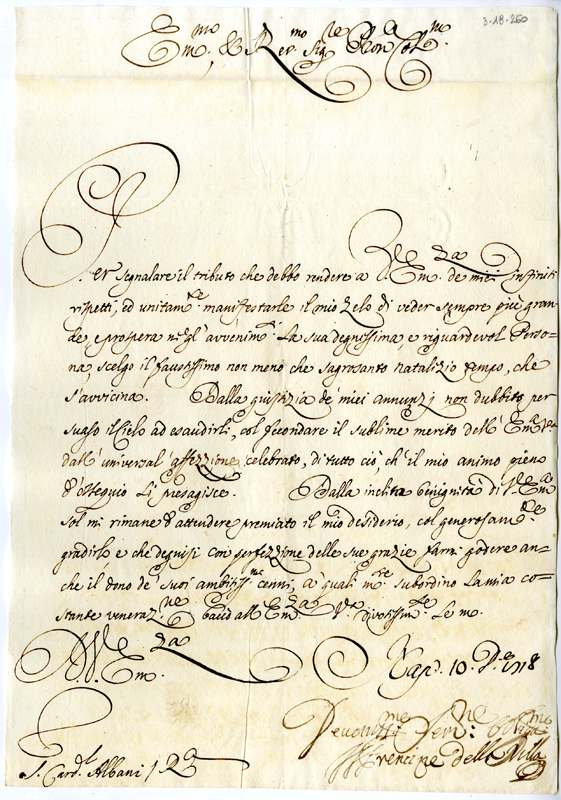 3-18-260
Em.mo, & Rev.mo Sig.re Pron Col.mo
Per segnalare il tributo che debbo rendere a V.ra Em.za de miei infiniti
rispetti, ed unitam.te manifestarle il mio zelo di veder sempre più gran-
de, e prospera negl' avvenim.ti La sua degnissima, e riguardevol Perso-
na, scelgo il faustissimo non meno che sagrosanto natalizio tempo, che
s'avvicina. Dalla giustizia de' miei annunzj non dubbito per
suaso il Cielo ad esaudirli, col secondare il sublime merito dell' Em.za V.ra
dall' universal' affezzione celebrato, di tutto ciò ch' il mio animo pieno
d'ossequio Li presagisce. Dalla inclita benignità di V. Em.za
sol mi rimane d'attendere premiato il mio desiderio, col generosam.te
gradirlo e che degnisi con perfezzione delle sue grazie farmi godere an-
che il dono de' suoi ambitiss.mi cenni, a quali m.re subordino la mia co-
stante veneraz.ne bacio all' Em.za V.ra divotissim.te Le m.
V. Em.za
Nap. 10. D.re 1718
S. Card.l Albani
Devotiss.mo Ser.re
Il Prencipe della